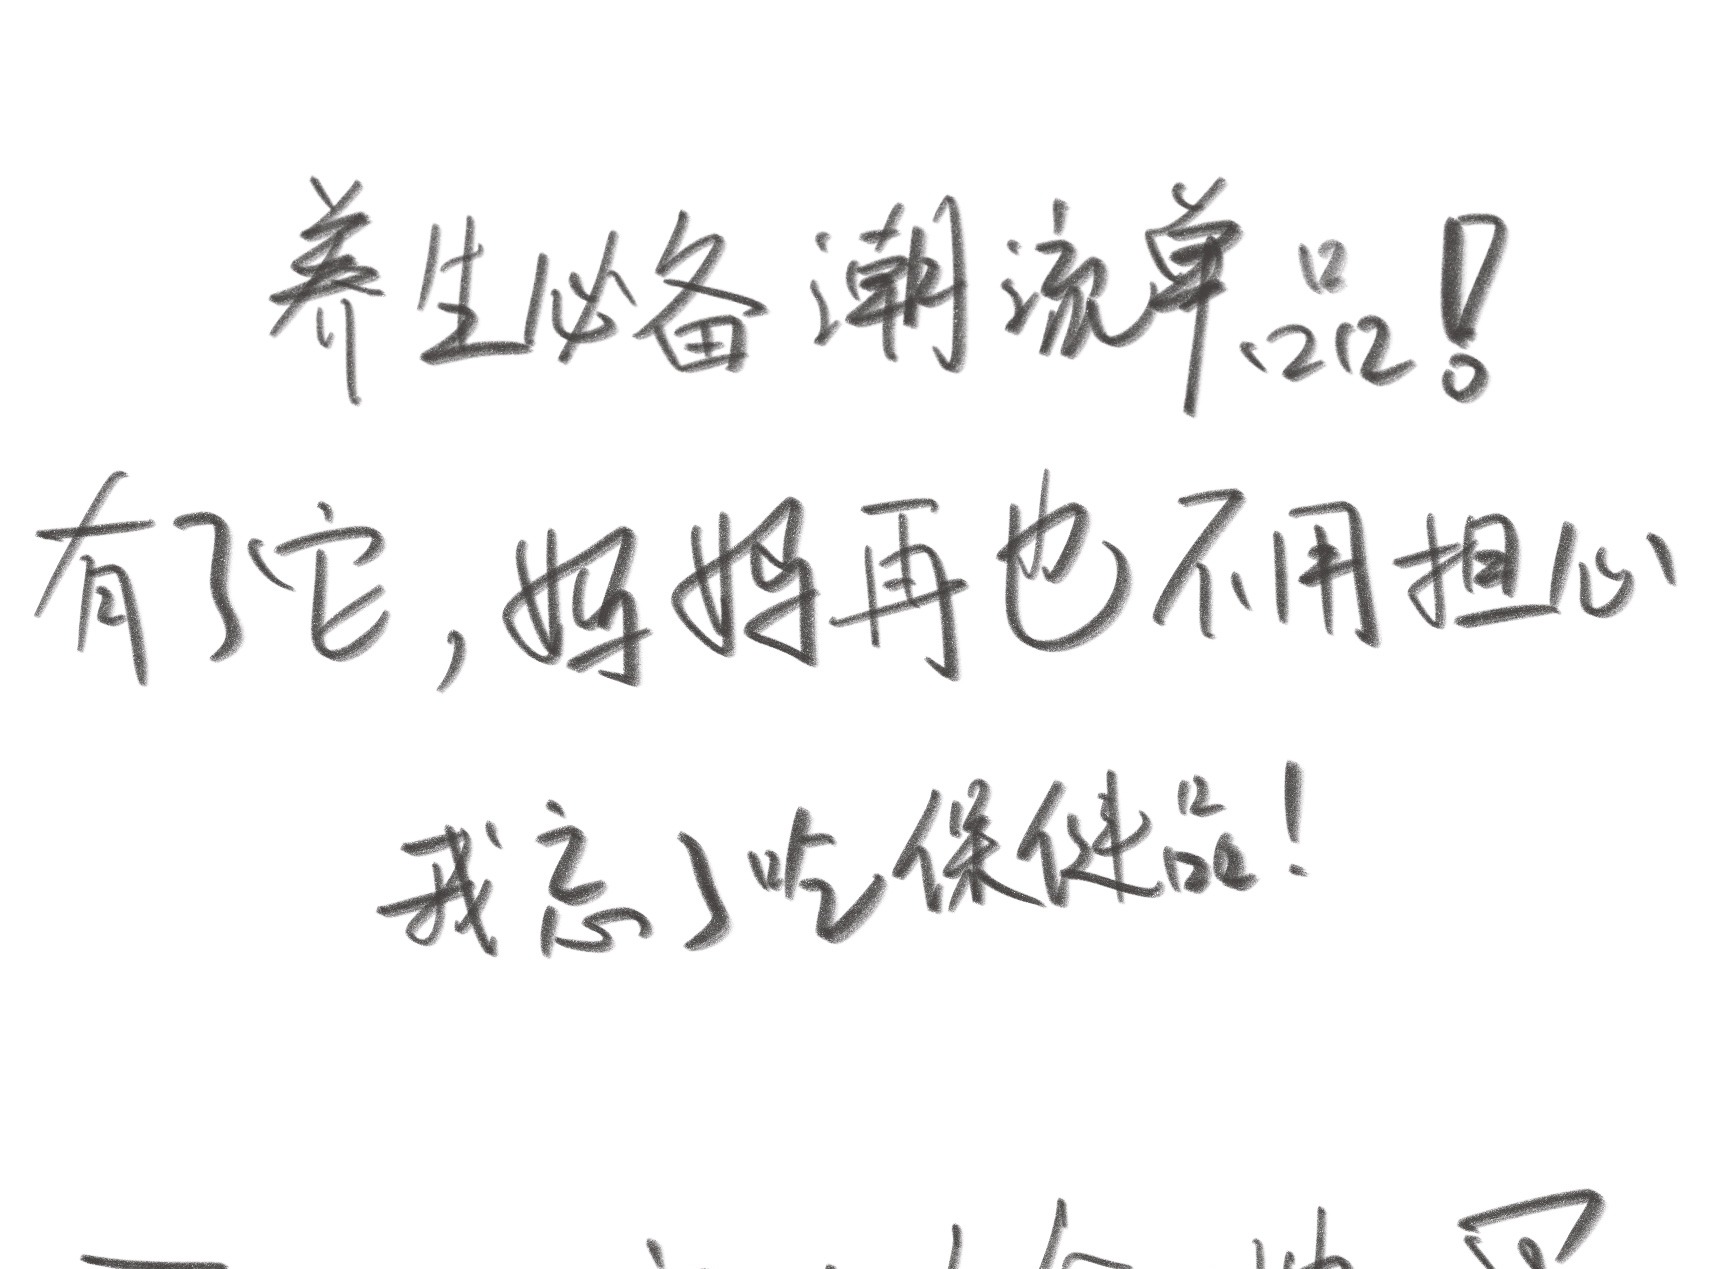 养生必备潮流单品!
有了它,妈妈再也不用担心
我忘了吃保健品!